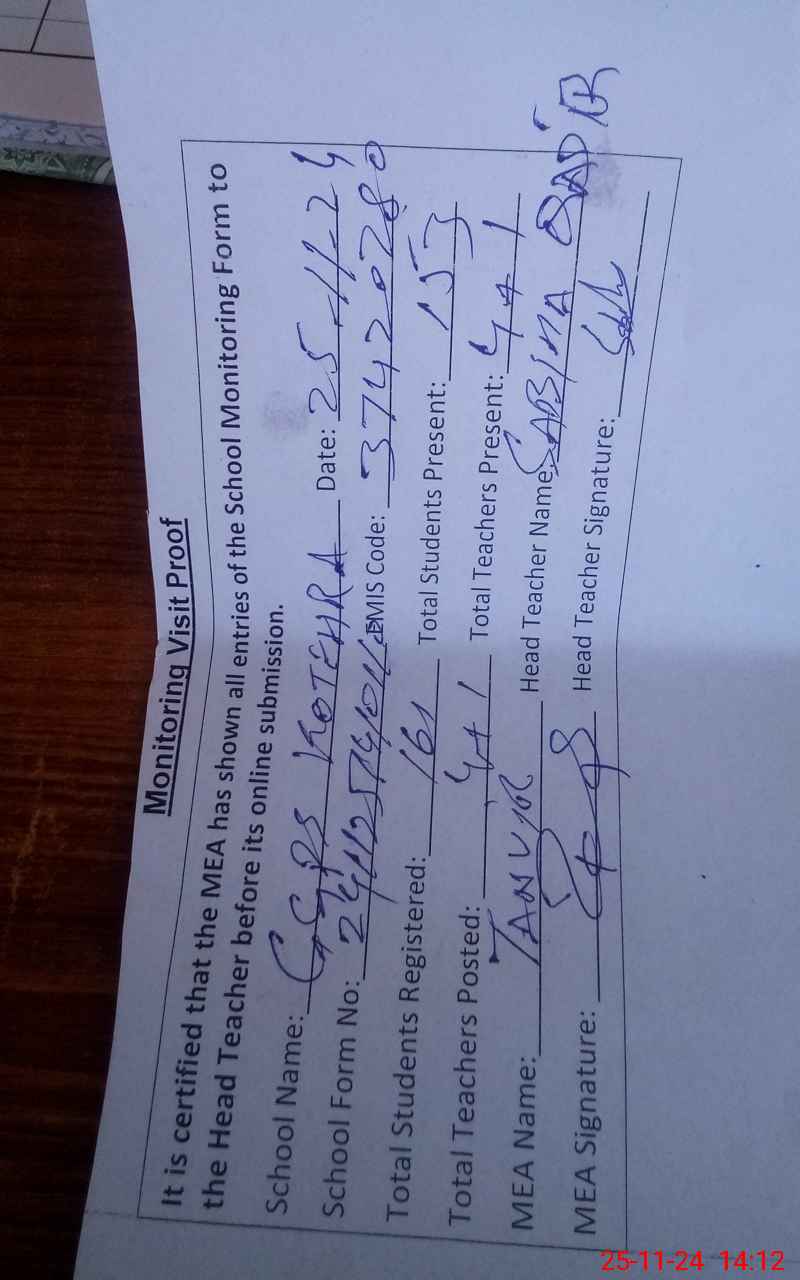 Monitoring Visit Proof
It is certified that the MEA has shown all entries of the School Monitoring Form to
the Head Teacher before its online submission.
School Name: GGPS KOTEHRA Date: 25-11-24
School Form No: EMIS Code: 37420280
Total Students Registered: 161 Total Students Present: 153
Total Teachers Posted: 4+1 Total Teachers Present: 4+1
MEA Name: TANVIR Head Teacher Name: SABINA QADIR
MEA Signature: Head Teacher Signature:
25-11-24 14:12